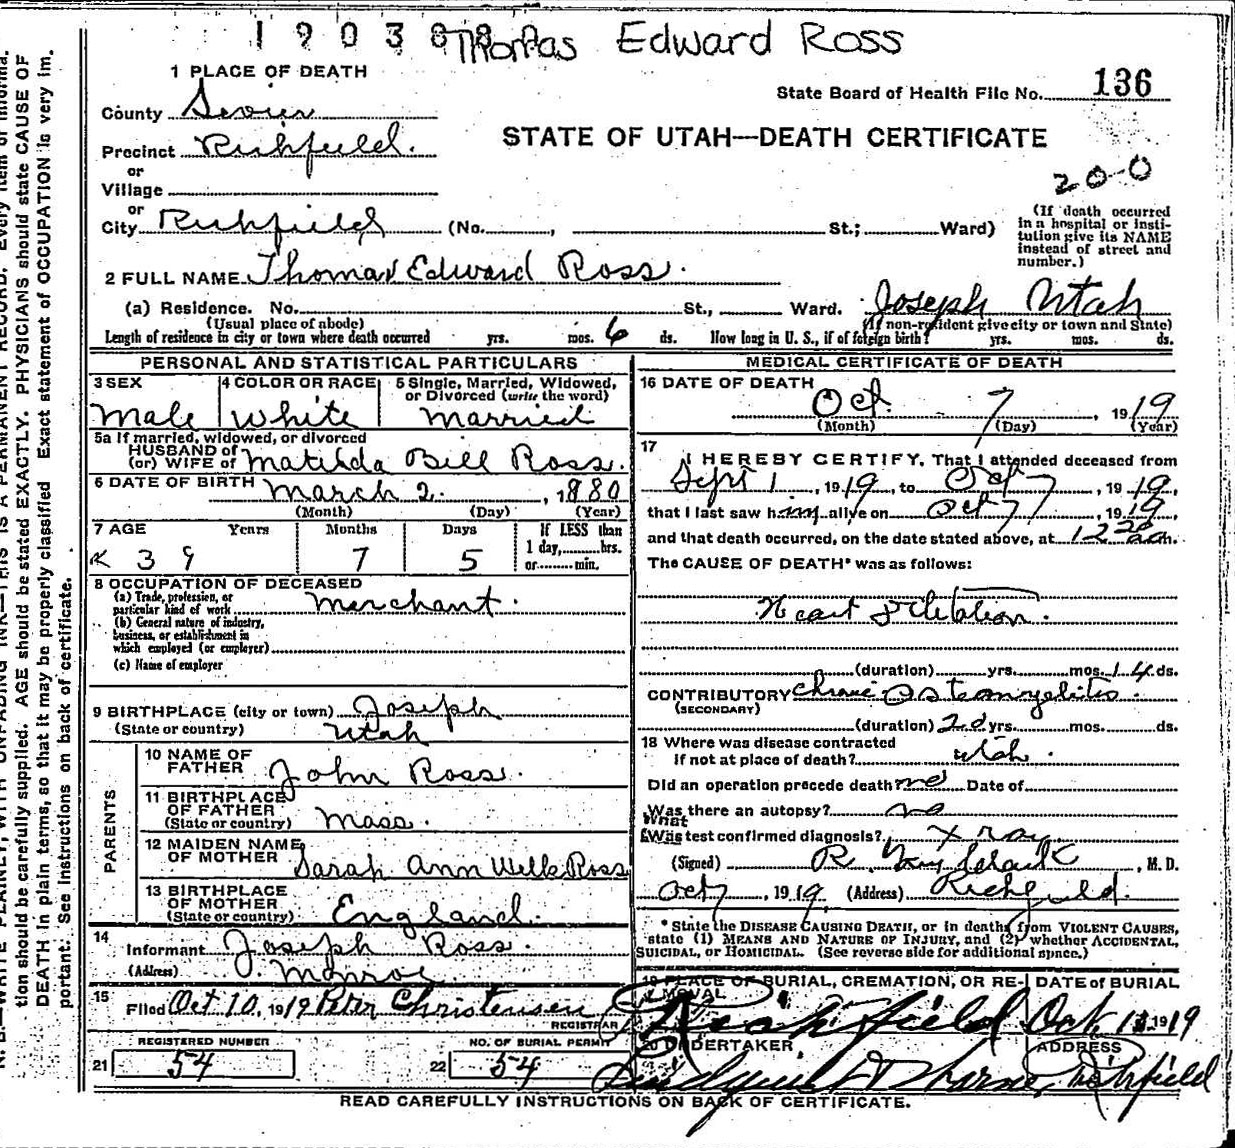 Thomas Edward Ross
1 PLACE OF DEATH
State Board of Health File No. 136
County Sevier
STATE OF UTAH—DEATH CERTIFICATE
Precinct Richfield.
or
Village
20-0
or
City Richfield (No. , St.; Ward)
(If death occurred
in a hospital or insti-
tution give its NAME
instead of street and
number.)
2 FULL NAME Thomas Edward Ross.
(a) Residence. No. St., Ward. Joseph Utah
(Usual place of abode) (If non-resident give city or town and State)
Length of residence in city or town where death occurred yrs. mos. 6 ds. How long in U. S., if of foreign birth? yrs. mos. ds.
PERSONAL AND STATISTICAL PARTICULARS
3 SEX 4 COLOR OR RACE 5 Single, Married, Widowed,
or Divorced (write the word)
Male White Married
5a If married, widowed, or divorced
HUSBAND of
(or) WIFE of Matilda Bill Ross.
6 DATE OF BIRTH March 2. , 1880
(Month) (Day) (Year)
7 AGE Years Months Days If LESS than
1 day, hrs.
or min.
39 7 5
8 OCCUPATION OF DECEASED
(a) Trade, profession, or
particular kind of work Merchant.
(b) General nature of industry,
business, or establishment in
which employed (or employer)
(c) Name of employer
9 BIRTHPLACE (city or town) Joseph
(State or country) Utah
PARENTS
10 NAME OF
FATHER John Ross.
11 BIRTHPLACE
OF FATHER
(State or country) Mass.
12 MAIDEN NAME
OF MOTHER Sarah Ann Ross
13 BIRTHPLACE
OF MOTHER
(State or country) England.
14
Informant Joseph Ross.
(Address) Monroe
15
Filed Oct 10, 1919 Peter Christensen
REGISTRAR
REGISTERED NUMBER NO. OF BURIAL PERMIT
21 54 22 54
MEDICAL CERTIFICATE OF DEATH
16 DATE OF DEATH
Oct. 7 , 1919
(Month) (Day) (Year)
17
I HEREBY CERTIFY, That I attended deceased from
Sept 1 , 1919, to Oct 7 , 1919,
that I last saw him alive on Oct 7 , 1919,
and that death occurred, on the date stated above, at m.
The CAUSE OF DEATH* was as follows:
Heart
(duration) yrs. mos. 14 ds.
CONTRIBUTORY Chronic Osteomyelitis.
(SECONDARY)
(duration) yrs. mos. ds.
18 Where was disease contracted
If not at place of death? Utah.
Did an operation precede death? no Date of
Was there an autopsy? no
What
Was test confirmed diagnosis? X ray
(Signed) R. , M. D.
Oct 7, 1919. (Address) Richfield.
* State the DISEASE CAUSING DEATH, or in deaths from VIOLENT CAUSES,
state (1) MEANS AND NATURE OF INJURY, and (2) whether ACCIDENTAL,
SUICIDAL, or HOMICIDAL. (See reverse side for additional space.)
19 PLACE OF BURIAL, CREMATION, OR RE- DATE of BURIAL
MOVAL
Richfield Oct. 1919
20 UNDERTAKER ADDRESS
Richfield
READ CAREFULLY INSTRUCTIONS ON BACK OF CERTIFICATE.
tion should be carefully supplied. AGE should be stated EXACTLY. PHYSICIANS should state CAUSE OF
DEATH in plain terms, so that it may be properly classified Exact statement of OCCUPATION is very im.
portant. See instructions on back of certificate.